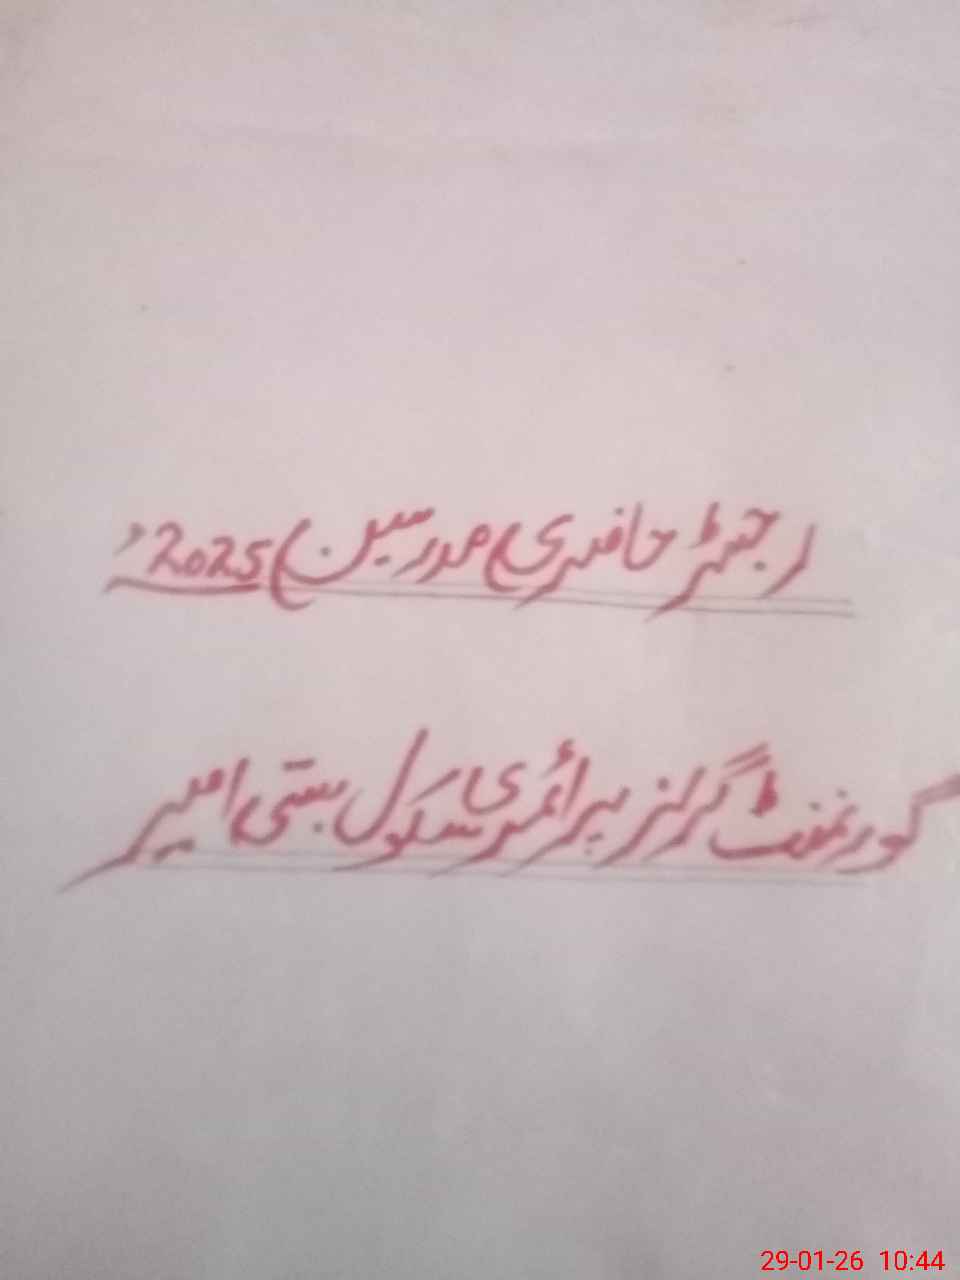 رجسٹر حاضری (مدرسین) 2025ء
گورنمنٹ گرلز پرائمری سکول بستی امیر
29-01-26 10:44